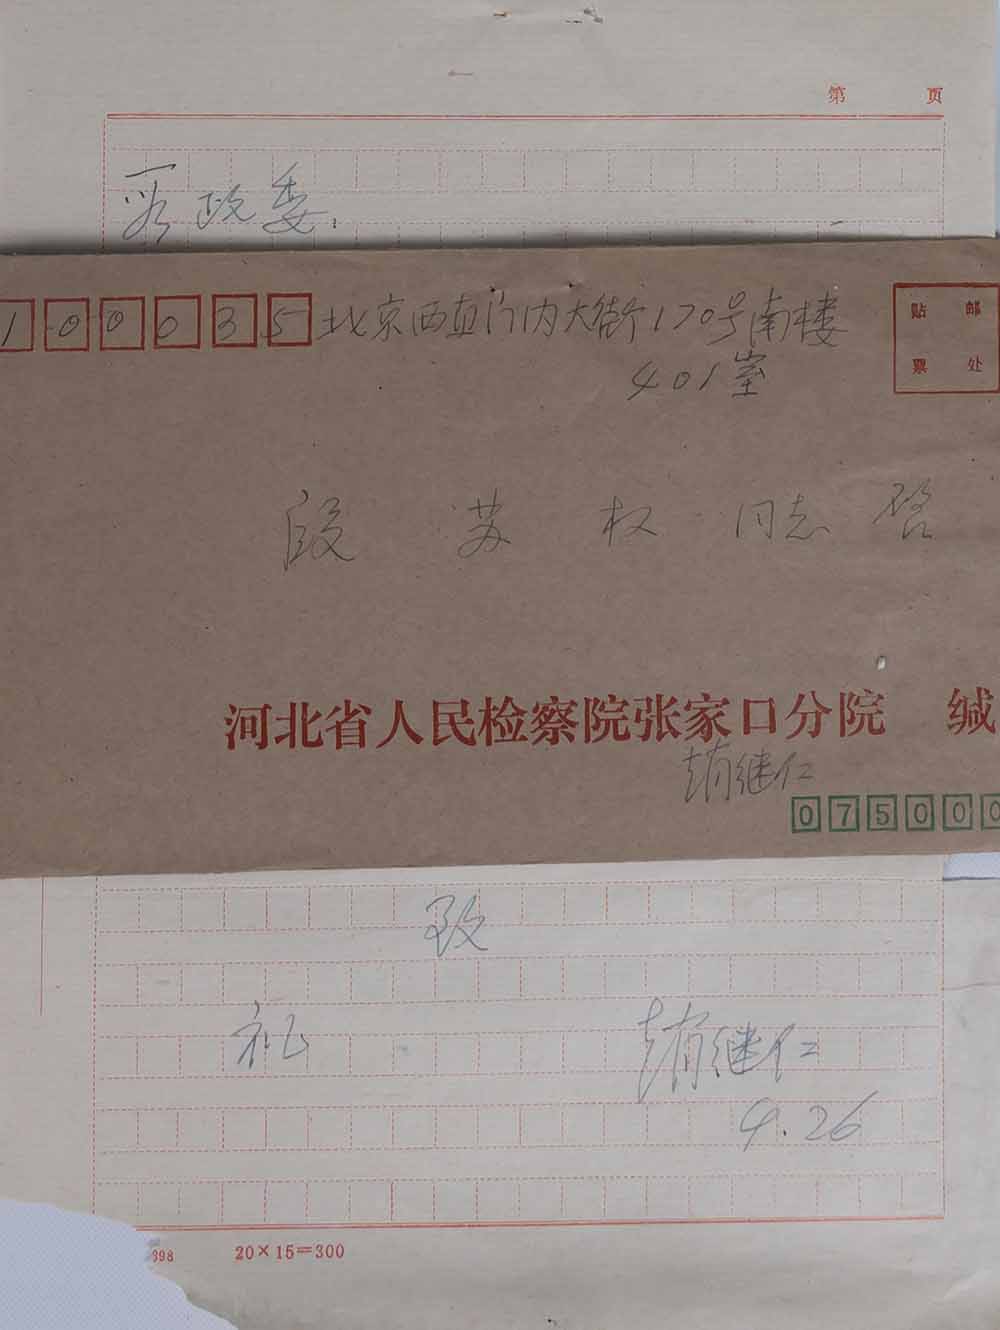 第 页
段政委：
100035 北京西直门内大街170号南楼
401室
贴 邮
票 处
段 苏 权 同志 启
河北省人民检察院张家口分院 缄
赵继仁
075000
致
礼
赵继仁
9.26
398 20×15=300